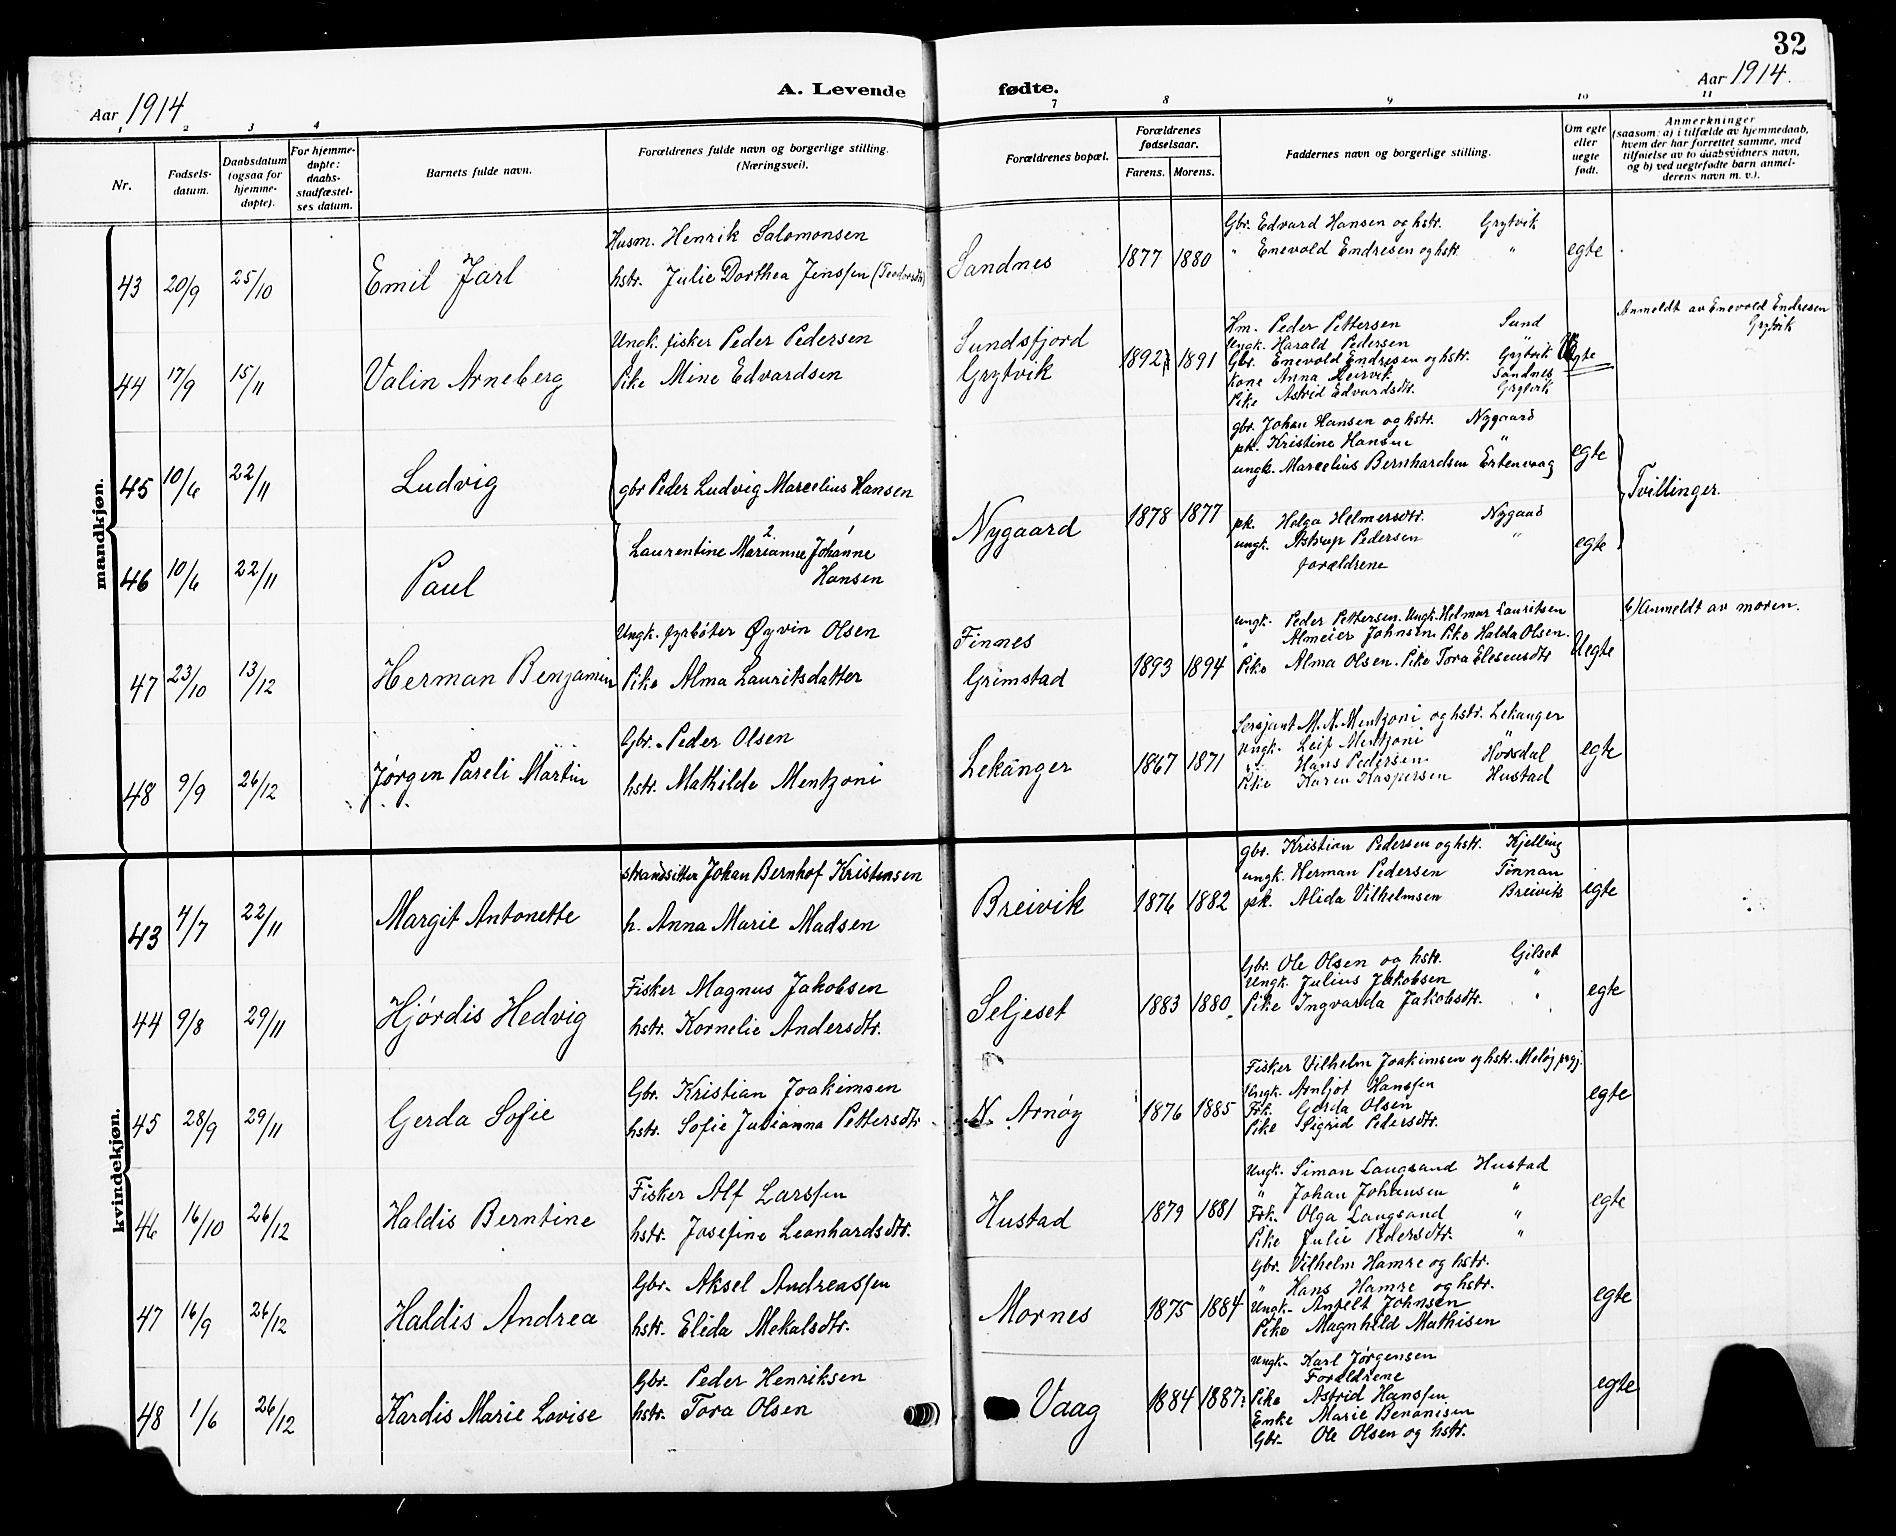 32
Aar 1914
A. Levende fødte.
Aar 1914.
1 2 3 4 7 8 9 10 11
Nr.
Fødsels-
datum.
Daabsdatum
(ogsaa for
hjemme-
døpte).
For hjemme-
døpte:
daabs-
stadfæstel-
ses datum.
Barnets fulde navn.
Forældrenes fulde navn og borgerlige stilling.
(Næringsvei).
Forældrenes bopæl.
Forældrenes
fødselsaar.
Farens. Morens.
Faddernes navn og borgerlige stilling.
Om egte
eller
uegte
født.
Anmerkninger
(saasom: a) i tilfælde av hjemmedaab,
hvem der har forrettet samme, med
tilføielse av to daabsvidners navn,
og b) ved uegtefødte barn anmel-
derens navn m. v.).
mandkjøn.
43 20/9 25/10 Emil Jarl
Husm. Henrik Salomonsen
hstr. Julie Dorthea Jenssen (Teodorsdtr)
Sandnes 1877 1880
Gbr. Edvard Hansen og hstr. Grytvik
" Enevold Endresen og hstr. "
egte
44 17/9 15/11 Valin Arneberg
Ungk. fisker Peder Pedersen
Pike Mine Edvardsen
Sundsfjord
Grytvik
1892 1891
Hm. Peder Pettersen Sund
Ungk. Harald Pedersen "
Gbr. Enevold Endresen og hstr. Grytvik
Kone Anna Leirvik Sandnes
Pike Astrid Edvardsdtr. Grytvik
Uegte
Anmeldt av Enevold Endresen
Grytvik
45 10/6 22/11 Ludvig
gbr Peder Ludvig Marcelius Hansen
gbr. Johan Hansen og hstr. Nygaard
pk. Kristine Hansen "
ungk. Marcelius Bernhardsen Estenvaag
egte
Tvillinger.
Nygaard 1878 1877
46 10/6 22/11 Paul
Laurentine Marianne Johanne
2
Hansen
pk. Helga Helmersdtr. Nygaard
ungk. Astrup Pedersen "
forældrene
egte
47 23/10 13/12 Herman Benjamin
Ungk. fyrbøter Øyvin Olsen
Pike Alma Lauritsdatter
Finnes
Grimstad
1893 1894
ungk. Peder Pettersen. Ungk. Helmar Lauritsen
" Almeier Johnsen. Pike Halda Olsen.
Pike Alma Olsen. Pike Tora Elesensdtr
Uegte
b) Anmeldt av moren.
48 9/9 26/12 Jørgen Pareli Martin
Gbr. Peder Olsen
hstr. Mathilde Mentzoni
Lekanger 1867 1871
Sersjant M. N. Mentzoni og hstr. Lekanger
Ungk. Leif Mentzoni "
" Hans Pedersen Horsdal
Pike Karen Kaspersen Hustad
egte
kvindekjøn.
43 4/7 22/11 Margit Antonette
strandsitter Johan Bernhof Kristensen
h. Anna Marie Madsen
Breivik 1876 1882
gbr. Kristian Pedersen og hstr. Kjelling
ungk. Herman Pedersen Finnan
pk. Alida Vilhelmsen Breivik
egte
44 9/8 29/11 Hjørdis Hedvig
Fisker Magnus Jakobsen
hstr. Kornelie Andersdtr.
Seljeset 1883 1880
Gbr. Ole Olsen og hstr. Gilset
Ungk. Julius Jakobsen "
Pike Ingvarda Jakobsdtr. "
egte
45 28/9 29/11 Gerda Sofie
Gbr. Kristian Joakimsen
hstr. Sofie Julianna Pettersdtr
N. Arnøy 1876 1885
Fisker Vilhelm Joakimsen og hstr. Meløy prgj.
Ungk. Arnljot Hanssen
Frk. Gerda Olsen
Pike Sigrid Pedersdtr.
egte
46 16/10 26/12 Haldis Berntine
Fisker Alf Larssen
hstr. Josefine Leonhardsdtr.
Hustad 1879 1881
Ungk. Simon Langsand Hustad
" Johan Johansen "
Frk. Olga Langsand "
Pike Julie Pedersdtr. "
egte
47 16/9 26/12 Haldis Andrea
Gbr. Aksel Andreassen
hstr. Elida Mekalsdtr.
Mornes 1875 1884
Gbr. Vilhelm Hamre og hstr.
" Hans Hamre og hstr.
Ungk. Anfelt Johnsen
Pike Magnhild Mathisen
egte
48 1/6 26/12 Kardis Marie Lovise
Gbr. Peder Henriksen
hstr. Tora Olsen
Vaag 1884 1887
Ungk. Karl Jørgensen
Forældrene
Pike Astrid Hanssen
Enke Marie Benonisen
Gbr. Ole Olsen og hstr.
egte